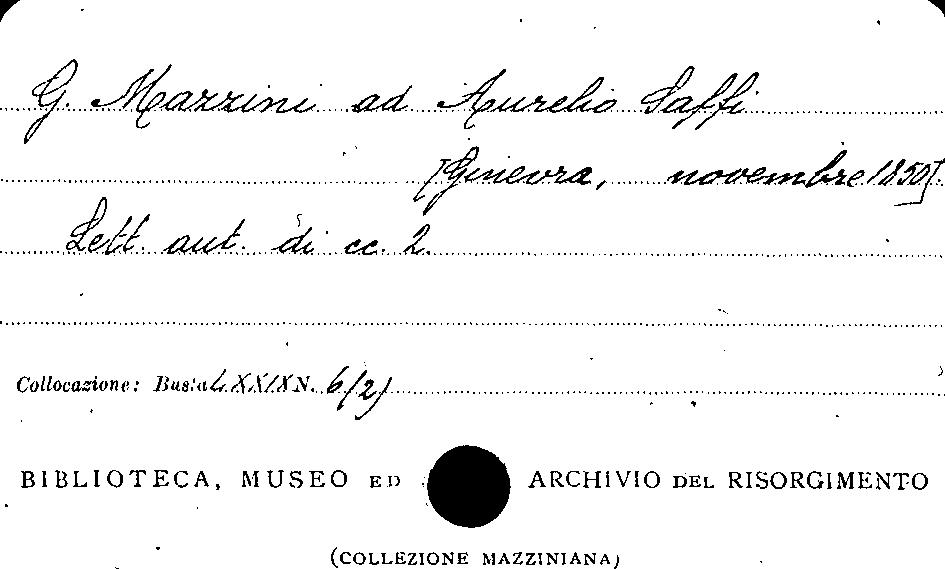 G. Mazzini ad Aurelio Saffi
[Ginevra, novembre 1850].
Lett. aut. di cc. 2.
Collocazione: Busta LXXIX N. 6(2)
BIBLIOTECA, MUSEO ED ARCHIVIO DEL RISORGIMENTO
(COLLEZIONE MAZZINIANA)